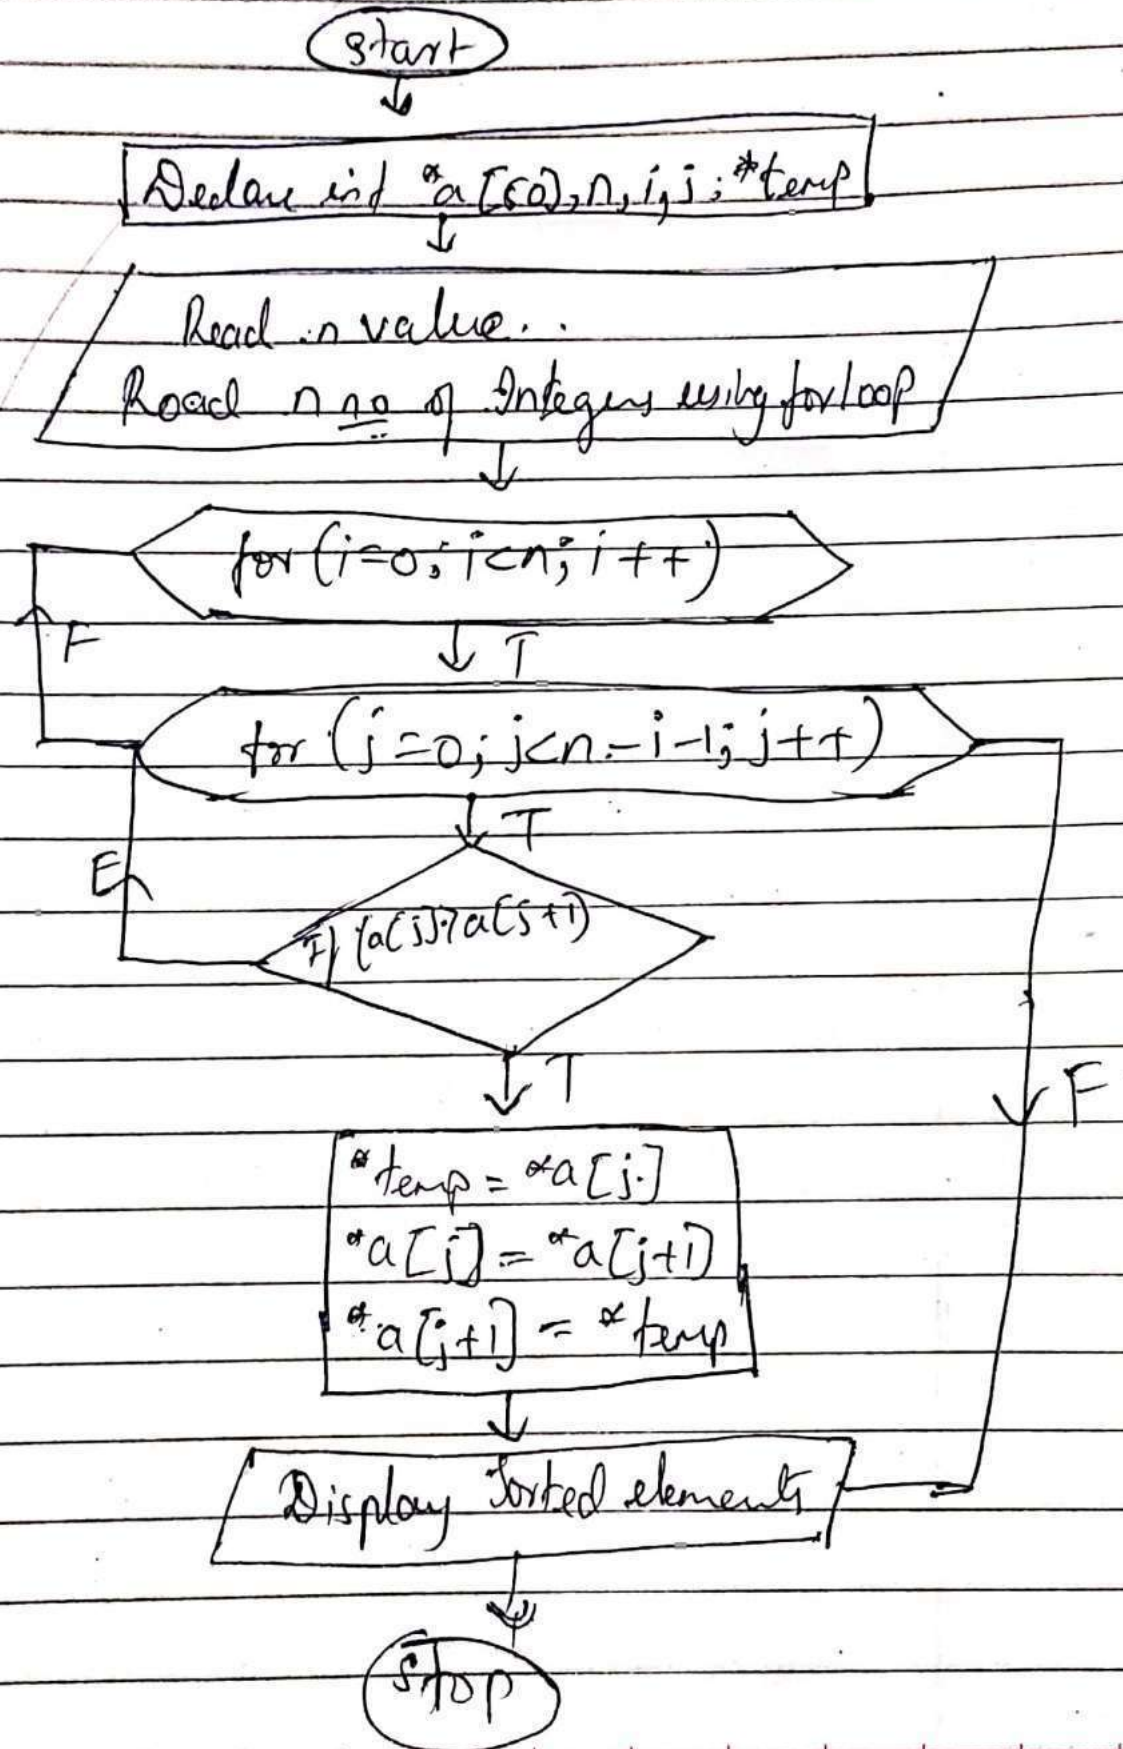 start
Declare int *a[50], n, i, j, *temp
Read n value..
Read n no of Integers using for loop
for (i=0; i<n; i++)
F
T
for (j=0; j<n-i-1; j++)
T
F
If (a[j]>a[j+1)
T
F
*temp = *a[j]
*a[j] = *a[j+1]
*a[j+1] = *temp
Display Sorted elements
Stop